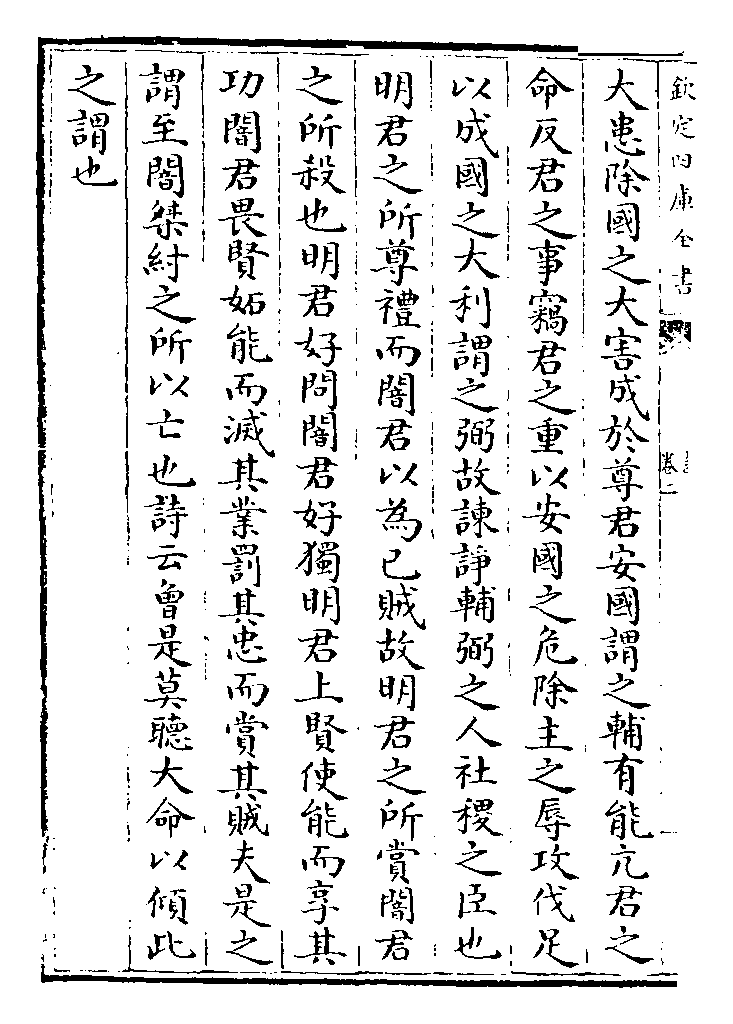 欽定四庫全書
卷二
大患除國之大害成於尊君安國謂之輔有能亢君之
命反君之事竊君之重以安國之危除主之辱攻伐足
以成國之大利謂之弼故諫諍輔弼之人社稷之臣也
明君之所尊禮而闇君以為己賊故明君之所賞闇君
之所殺也明君好問闇君好獨明君上賢使能而享其
功闇君畏賢妬能而滅其業罰其忠而賞其賊夫是之
謂至闇桀紂之所以亡也詩云曾是莫聽大命以傾此
之謂也